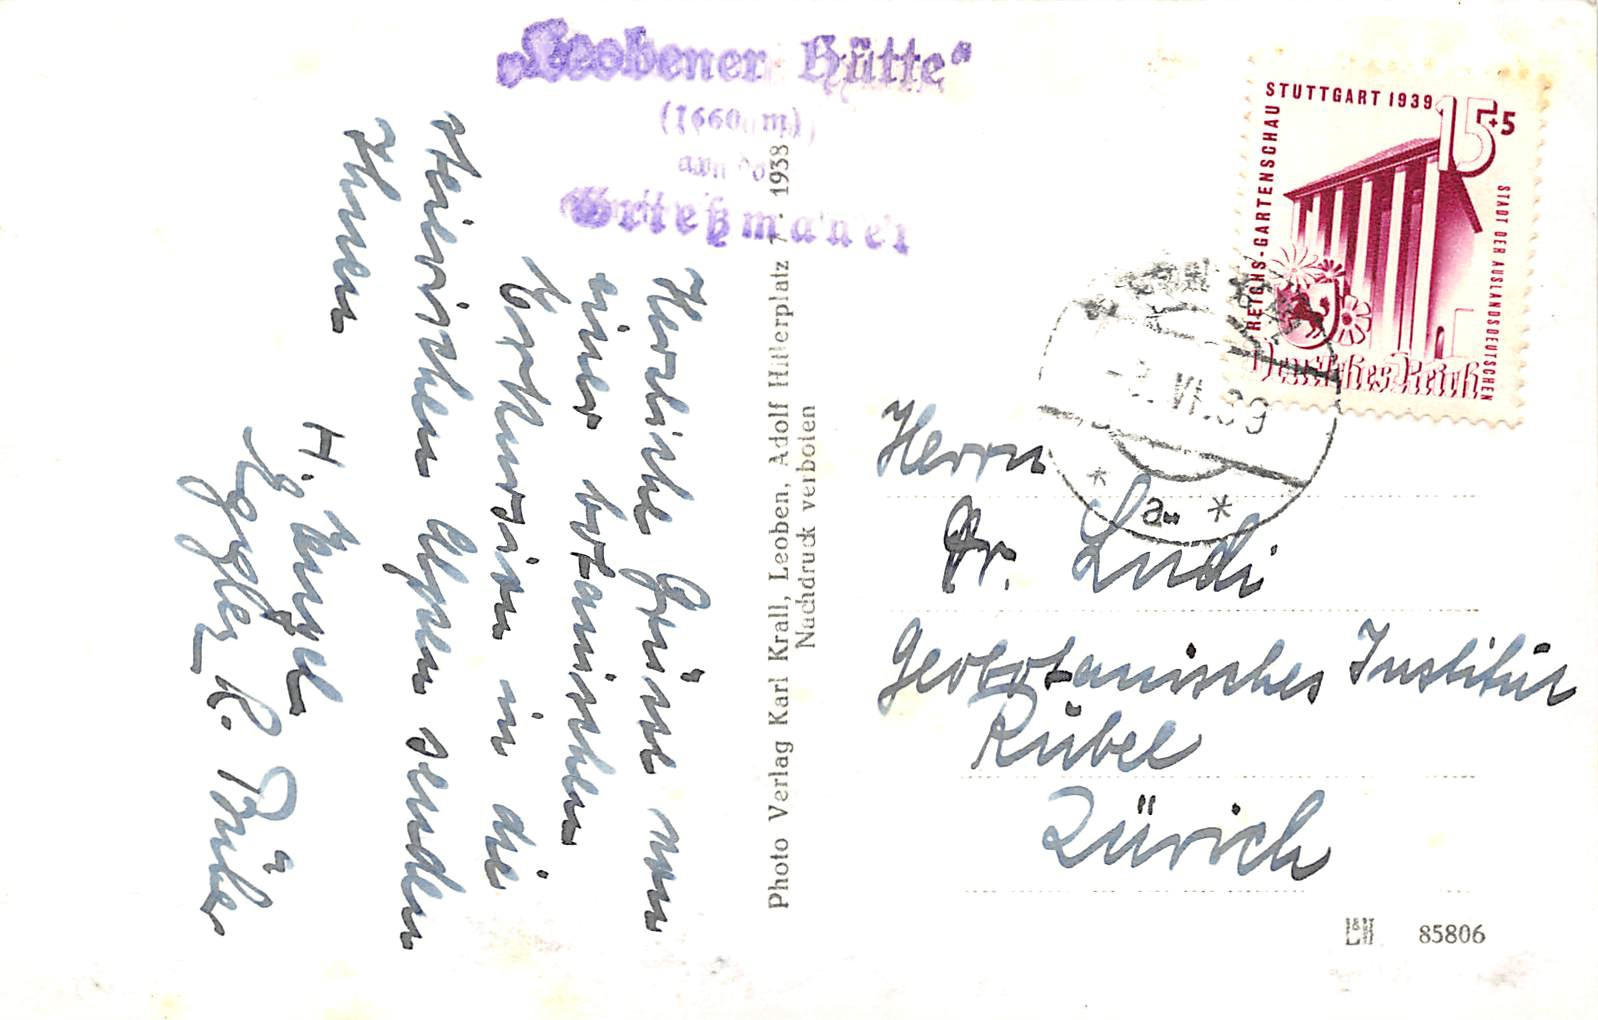 „Leobener Hütte“
(1660 m)
Grießmauer
Herzliche Grüsse von
einer botanischen
Exkursion in die
steirischen Alpen senden
Ihnen
H.
R.
Photo Verlag Karl Krall, Leoben, Adolf Hitlerplatz 7. 1938
Nachdruck verboten
STUTTGART 1939
15+5
REICHS-GARTENSCHAU
STADT DER AUSLANDSDEUTSCHEN
Deutsches Reich
VI.39
* a *
Herrn
Dr. Ludi
Geobotanisches Institut
Rübel
Zürich
85806